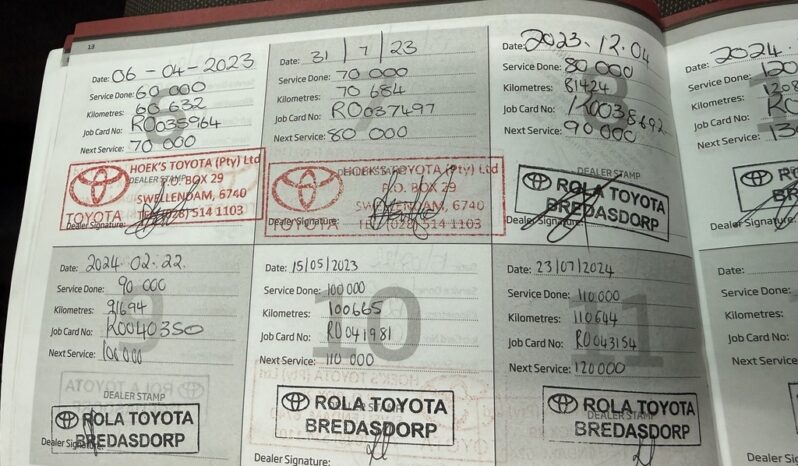 13
Date: 06-04-2023
Service Done: 60 000
Kilometres: 60 632
Job Card No: RO035964
Next Service: 70 000
HOEK'S TOYOTA (Pty) Ltd
DEALER STAMP
P.O. BOX 29
SWELLENDAM, 6740
TOYOTA TEL: (028) 514 1103
Dealer Signature:
Date: 31/7/23
Service Done: 70 000
Kilometres: 70 684
Job Card No: RO037497
Next Service: 80 000
HOEK'S TOYOTA (Pty) Ltd
P.O. BOX 29
SWELLENDAM, 6740
TOYOTA TEL: (028) 514 1103
Dealer Signature:
Date: 2023.12.04
Service Done: 80 000
Kilometres: 81424
Job Card No: RO038692
Next Service: 90 000
DEALER STAMP
ROLA TOYOTA
BREDASDORP
Dealer Signature:
Date: 2024.
Service Done: 120
Kilometres: 1208
Job Card No: RO
Next Service: 130
Dealer Signature:
Date: 2024.02.22.
Service Done: 90 000
Kilometres: 91694
Job Card No: RO040350
Next Service: 100 000
DEALER STAMP
ROLA TOYOTA
BREDASDORP
Dealer Signature:
10
Date: 15/05/2023
Service Done: 100 000
Kilometres: 100665
Job Card No: RO041981
Next Service: 110 000
ROLA TOYOTA
BREDASDORP
Dealer Signature:
11
Date: 23/07/2024
Service Done: 110 000
Kilometres: 110644
Job Card No: RO043154
Next Service: 120000
DEALER STAMP
ROLA TOYOTA
BREDASDORP
Dealer Signature:
Date:
Service Done:
Kilometres:
Job Card No:
Next Service